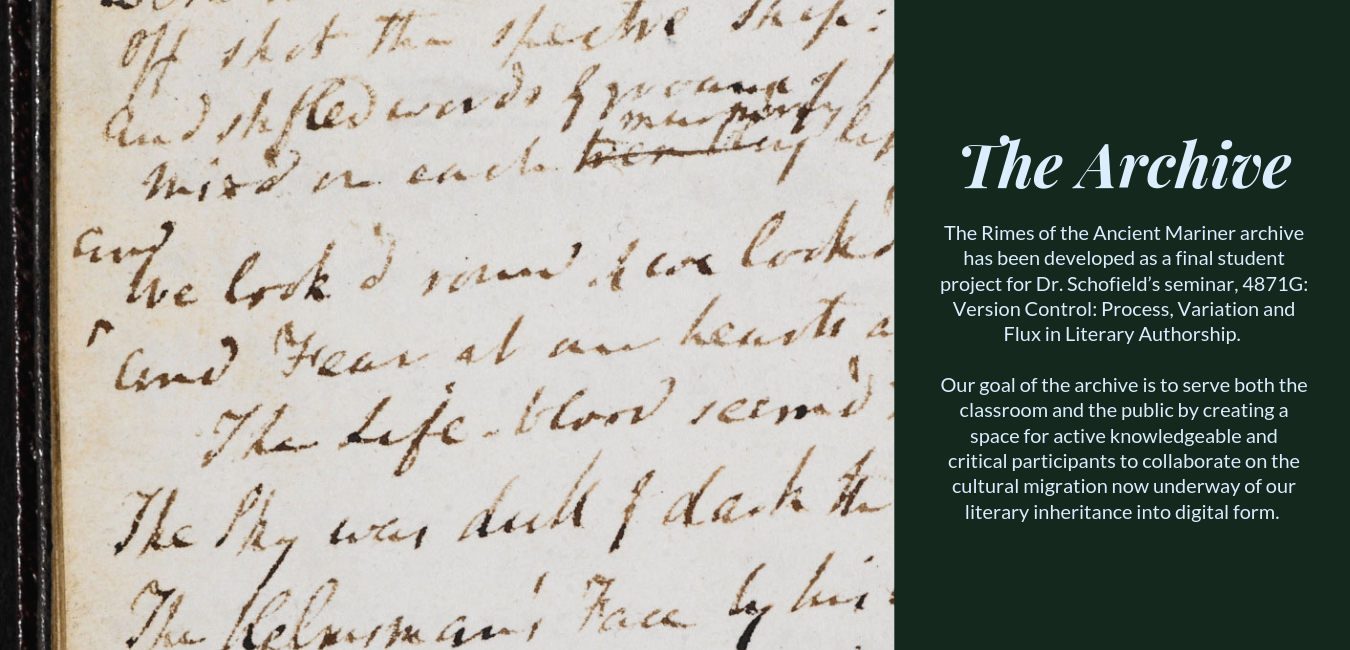 Off shot the spectre ship:
And stifled words & groans of
murmuring
mix'd on each
and
We look'd round & we look'd
And Fear at our hearts a
The Life-blood seem'd
The Sky was dull & dark the
The Helmsman's Face by his
The Archive
The Rimes of the Ancient Mariner archive
has been developed as a final student
project for Dr. Schofield’s seminar, 4871G:
Version Control: Process, Variation and
Flux in Literary Authorship.
Our goal of the archive is to serve both the
classroom and the public by creating a
space for active knowledgeable and
critical participants to collaborate on the
cultural migration now underway of our
literary inheritance into digital form.